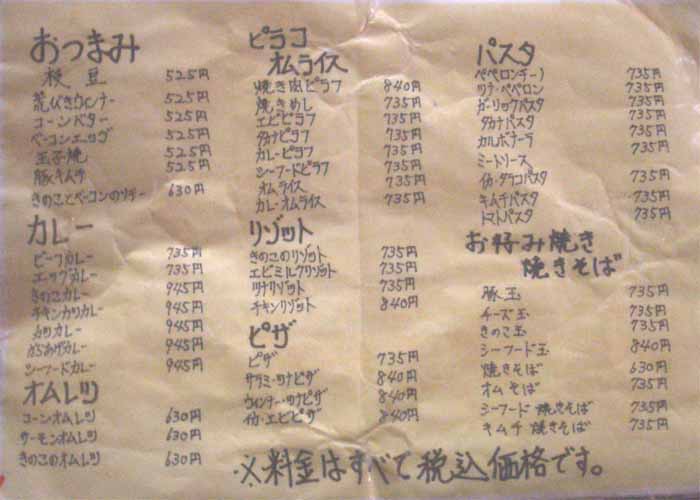 おつまみ
枝豆 525円
荒びきウィンナー 525円
コーンバター 525円
ベーコンエッグ 525円
玉子焼 525円
豚キムチ 525円
きのことベーコンのソテー 630円
カレー
ビーフカレー 735円
エッグカレー 735円
きのこカレー 945円
チキンカツカレー 945円
カツカレー 945円
からあげカレー 945円
シーフードカレー 945円
オムレツ
コーンオムレツ 630円
サーモンオムレツ 630円
きのこのオムレツ 630円
ピラフ
オムライス
焼き肉ピラフ 840円
焼きめし 735円
エビピラフ 735円
タカナピラフ 735円
カレーピラフ 735円
シーフードピラフ 735円
オムライス 735円
カレーオムライス 735円
リゾット
きのこのリゾット 735円
エビミルクリゾット 735円
ツナリゾット 735円
チキンリゾット 840円
ピザ
ピザ 735円
サラミ・ツナピザ 840円
ウィンナー・ツナピザ 840円
イカ・エビピザ 840円
パスタ
ペペロンチーノ 735円
ツナ・ペペロン 735円
ガーリックパスタ 735円
タカナパスタ 735円
カルボナーラ 735円
ミートソース
イカ・タラコパスタ 735円
キムチパスタ 735円
トマトパスタ 735円
お好み焼き
焼きそば
豚玉 735円
チーズ玉 735円
きのこ玉 735円
シーフード玉 840円
焼きそば 630円
オムそば 735円
シーフード焼きそば 735円
キムチ焼きそば 735円
※料金はすべて税込価格です。